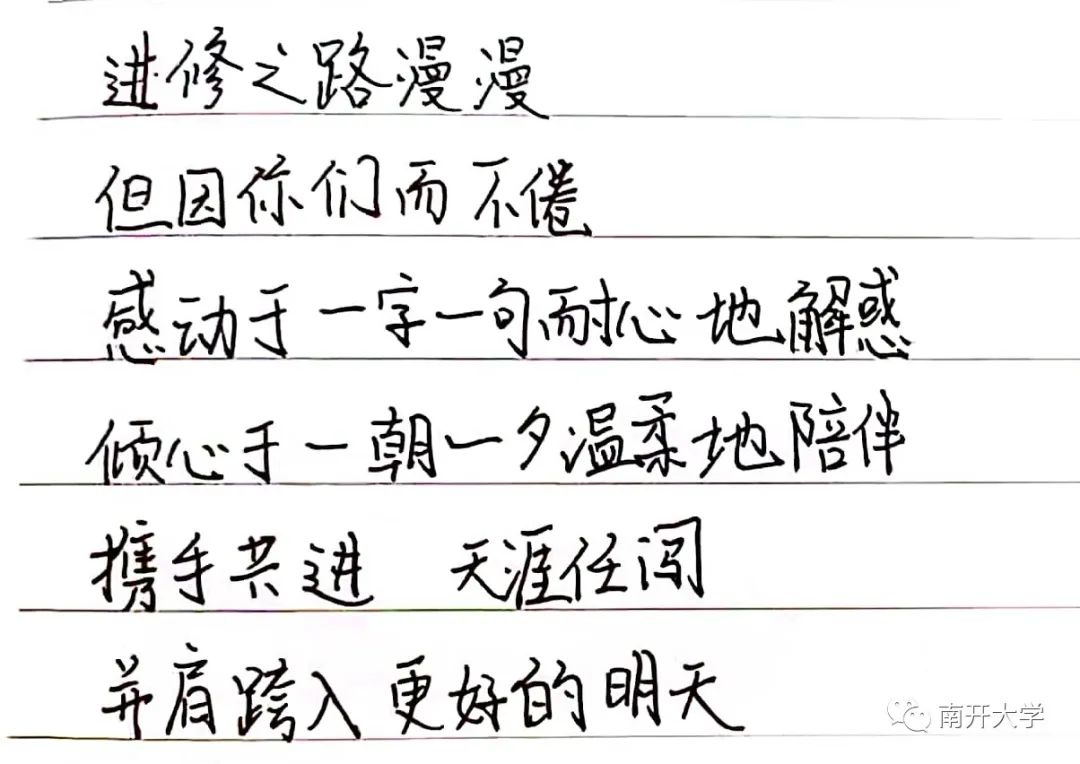 进修之路漫漫
但因你们而不倦
感动于一字一句耐心地解惑
倾心于一朝一夕温柔地陪伴
携手共进 天涯任闯
并肩跨入更好的明天
南开大学